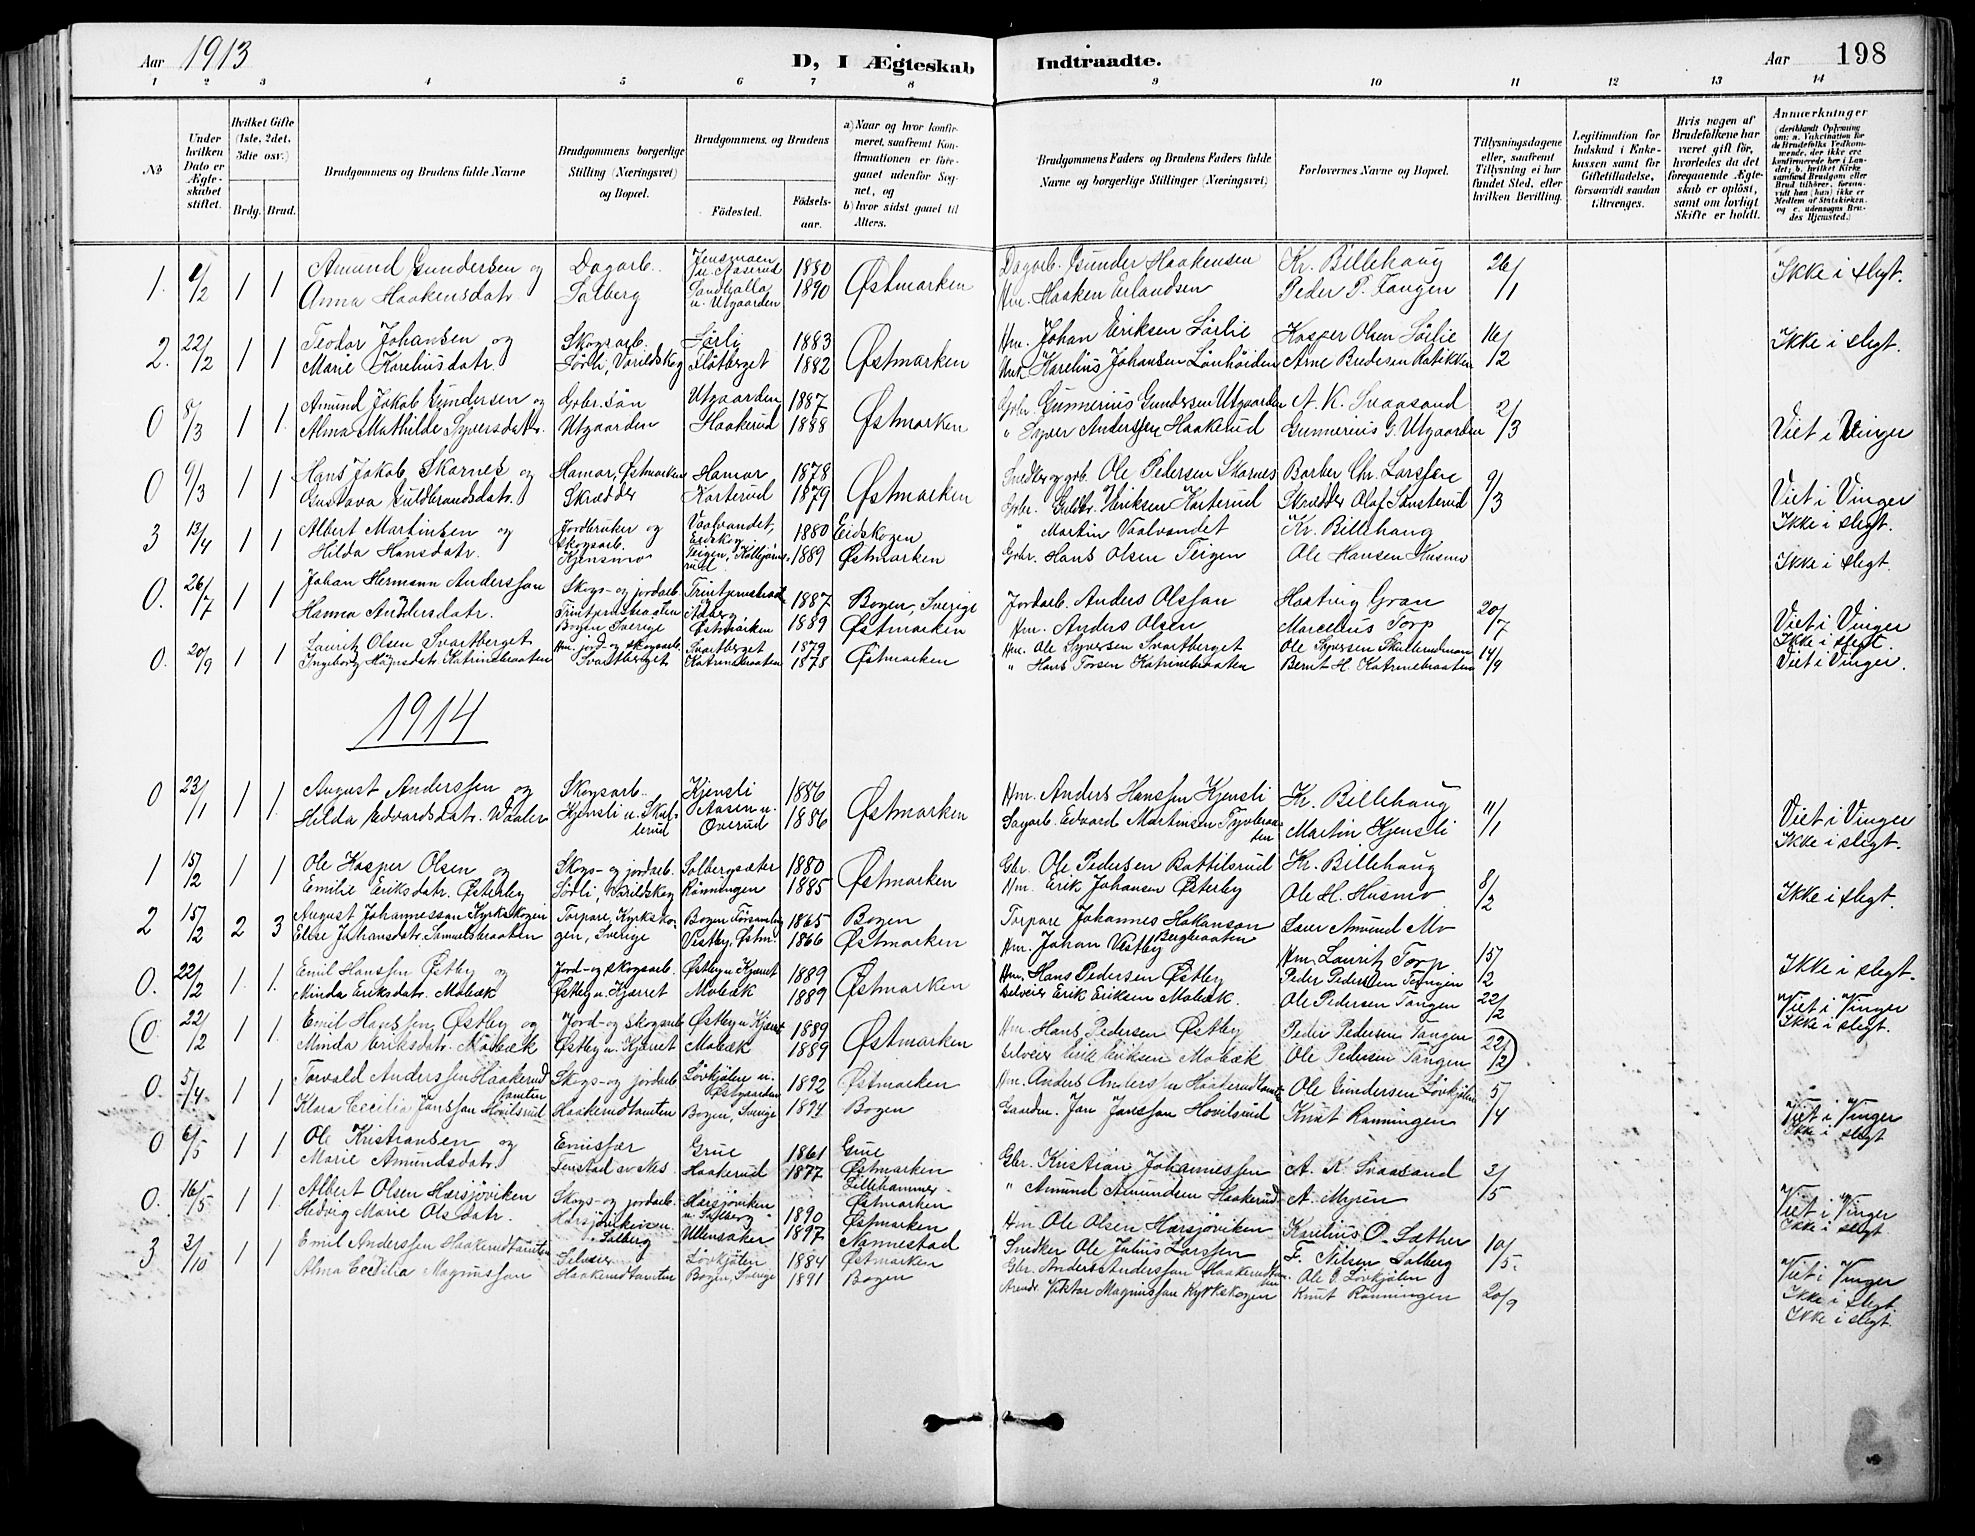 Aar 1913 D, I Ægteskab Indtraadte. Aar 198
1 2 3 4 5 6 7 8 9 10 11 12 13 14
No
Under hvilken Dato er Ægteskabet stiftet.
Hvilket Gifte (1ste, 2det, 3die osv.)
Brdg. Brud.
Brudgommens og Brudens fulde Navne
Brudgommens borgerlige Stilling (Næringsvei) og Bopæl.
Brudgommens og Brudens
Fødested. Fødselsaar.
a) Naar og hvor konfirmeret, saafremt Konfirmationen er foregaaet udenfor Sognet, og
b) hvor sidst gaaet til Alters.
Brudgommens Faders og Brudens Faders fulde Navne og borgerlige Stillinger (Næringsvei)
Forlovernes Navne og Bopæl.
Tillysningsdagene eller, saafremt Tillysning ei har fundet Sted, efter hvilken Bevilling.
Legitimation for Indskud i Enkekassen samt for Giftetilladelse, forsaavidt saadan tiltrænges.
Hvis nogen af Brudefolkene har været gift før, hvorledes da det foregaaende Ægteskab er opløst, samt om lovligt Skifte er holdt.
Anmærkninger
1. 1/2 1 1 Amund Gundersen og Dagarb. 1880 Østmarken Dagarb. Gunder Haakensen Kr. Billehaug 26/1 Ikke i slegt.
Anna Haakensdatr. Solberg u. Utgaarden 1890 Hm. Haaken Erlandsen Peder P. Tangen
2. 22/2 1 1 Teodor Johansen og Skogsarb. Sørli 1883 Østmarken Hm. Johan Eriksen Sørlie Kasper Olsen Sørlie 16/2 Ikke i slegt.
Marie Kareliusdatr. Sørli, Varildskog Fløtberget 1882 Karelius Johansen Lønhøiden Arne Budersen Ratikken
0 8/3 1 1 Amund Jakob Gundersen og Gbr. søn Utgaarden 1887 Østmarken Gbr. Gunnerius Gundersen Utgaarden A. K. Svaasand 2/3 Viet i Vinger
Alma Mathilde Syversdatr. Utgaarden Haakerud 1888 " Syver Anderssen Haakerud Gunnerius G. Utgaarden
0 9/3 1 1 Hans Jakob Skarnes og Hamar, Østmarken Hamar 1878 Østmarken Snedker og gbr. Ole Pedersen Skarnes Barber Chr. Larssen 9/3 Viet i Vinger
Gustava Guldbrandsdatr. Skrædder Karterud 1879 Gbr. Guldbr. Eriksen Karterud Skrædder Olaf Sansterud Ikke i slegt.
3 13/4 1 1 Albert Martinsen og Jordbruker og skogsarb. Vaalvandet, Eidskog 1880 Eidskogen " Martin Vaalvandet Kr. Billehaug
Hilda Hansdatr. Kjensmo Teigen, Kolbjørnsrud 1889 Østmarken Gbr. Hans Olsen Teigen Ole Hansen Husmo Ikke i slegt.
0. 26/7 1 1 Johan Hermann Anderssan Skogs- og jordarb. 1887 Bogen, Sverige Jordarb. Anders Olssan Hartvig Gran 20/7 Viet i Vinger
Hanna Andersdatr. Bogen Sverige Østmarken 1889 Østmarken Hm. Anders Olsen Marcelius Torp Ikke i slegt.
0. 20/9 1 1 Lauritz Olsen Svartberget Hm. jord- og skogsarb. Svartberget 1879 Østmarken Hm. Ole Syversen Svartberget Ole Syversen Skullerudmoen 14/9 Viet i Vinger.
Ingeborg Hansdatr. Katrinebraaten Svartberget Katrinebraaten 1878 " Hans Torsen Katrinebraaten Bernt H. Katrinebraaten
1914
0 23/1 1 1 August Anderssen og Skogsarb. Kjensli 1886 Østmarken Hm. Anders Hanssen Kjensli Kr. Billehaug 11/1 Viet i Vinger
Hilda Edvardsdatr. Vaaler Kjensli u. Skulterud Aasen u. Overud 1886 Sagarb. Edvard Martinsen Martin Kjensli Ikke i slegt.
1 15/2 1 1 Ole Kasper Olsen og Skogs- og jordarb. Solbergsæter 1880 Østmarken Gbr. Ole Pedersen Battilsrud Kr. Billehaug 8/2 Ikke i slegt.
Emilie Eriksdatr. Østerby Sørli, Varildskog Rønningen 1885 Hm. Erik Johansen Østerby Ole H. Husmo
2 15/2 2 3 August Johannessan Kyrkskogen Torpare, Kyrkskogen, Sverige Bogen Församling 1865 Bogen Torpare Johannes Hakanson Bergbraaten Lærer Amund Mo
Elise Johansdatr. Samuelsbraaten Vestby, Østm. 1866 Østmarken Hm. Johan Vestby Hm. Lauritz Torp 15/2 Ikke i slegt.
0. 22/2 1. 1. Emil Hanssen Østby og Jord- og skogsarb. Østby u. Kjærret 1889 Østmarken Hm. Hans Pedersen Østby Peder Pedersen Tangen 22/2 Viet i Vinger
Minda Eriksdatr. Mobæk Østby u. Kjærret Mobæk 1889 Selveier Erik Eriksen Mobæk. Ole Pedersen Tangen Ikke i slegt.
(0 22/2 1 1. Emil Hanssen Østby og Jord- og skogsarb. Østby u. Kjærret 1889 Østmarken Hm. Hans Pedersen Østby Peder Pedersen Tangen 22/2)
Minda Eriksdatr. Mobæk Østby u. Kjærret Mobæk 1889 Selveier Erik Eriksen Mobæk Ole Pedersen Tangen
0. 5/4 1 1 Torvald Anderssen Haakerudtomten Skogs- og jordarb. Løvkjølen u. Østgaarden 1892 Østmarken Hm. Anders Anderssen Haakerudtomten Ole Gundersen Løvkjølen 5/4 Viet i Vinger
Klara Cecilia Janssan Hovilsrud Haakerudtomten Bogen, Sverige 1894 Bogen Gaardm. Jan Janssan Hovilsrud Knut Rønningen Ikke i slegt
0 6/5 1 1 Ole Kristiansen og Emissær Grue 1861 Grue Gbr. Kristian Johannessen A. K. Svaasand 3/5
Marie Amundsdatr. Tenstad av Nes Haakerud 1877 Østmarken Lillehammer " Amund Amundsen Haakerud A. Myren Viet i Vinger
0. 16/5 1 1 Albert Olsen Harsjøviken Skogs- og jordarb. Harsjøviken u. Solberg 1890 Østmarken Hm Ole Olsen Harsjøviken Karelius O. Sæther 10/5. Ikke i slegt
Hedvig Marie Olsdatr. Harsjøviken u. Solberg Ullensaker 1897 Nannestad Snedker Ole Julius Larssen F. Nilsen Solberg Viet i Vinger
3 3/10 1 1 Emil Anderssen Haakerudtomten Selveier Løvkjølen 1884 Østmarken Gbr. Anders Anderssen Haakerudtomten Ole G. Løvkjølen 20/9 Ikke i slegt.
Alma Cecilia Magnussan Haakerudtomten Bogen, Sverige 1891 Bogen Arendr. Viktor Magnussan Kyrkskogen Knut Rønningen Ikke i slegt.